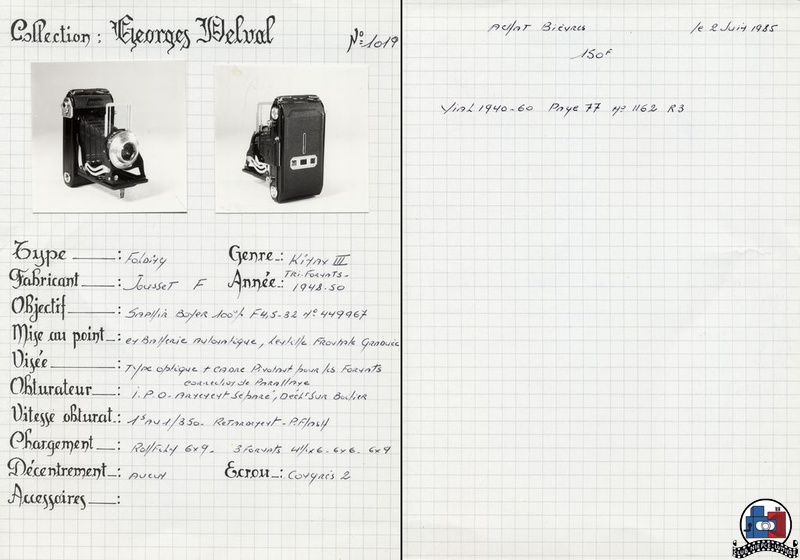 Collection : Georges Delval
Nº 1019
Type : Folding
Genre : Kinax III
Tri-Formats-
Fabricant : Jousset F
Année : 1948-50
Objectif : Saphir Boyer 100m/m F4,5-32 nº 449967
Mise au point : en Batterie Automatique, Lentille Frontale Graduée
Visée : Type optique + Cadre Pivotant pour les Formats
correction de Parallaxe
Obturateur : I.P.O. Armement Séparé, Déclt Sur Boitier
Vitesse obturat. : 1s au 1/350- Retardement - P.Flash
Chargement : Rollfilm 6x9- 3 Formats 4½x6 - 6x6 - 6x9
Décentrement : Aucun
Ecrou : Congrès 2
Accessoires :
Achat Bièvres le 2 Juin 1985
150F
Vial 1940-60 Page 77 nº 1162 R3